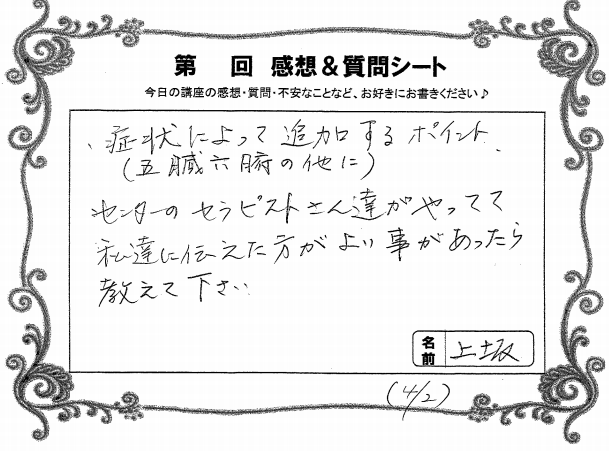 第　回 感想＆質問シート
今日の講座の感想・質問・不安なことなど、お好きにお書きください♪
・症状によって追加するポイント
(五臓六腑の他に)
センターのセラピストさん達がやってて
私達に伝えた方がよい事があったら
教えて下さい
名前 上坂
(4/2)